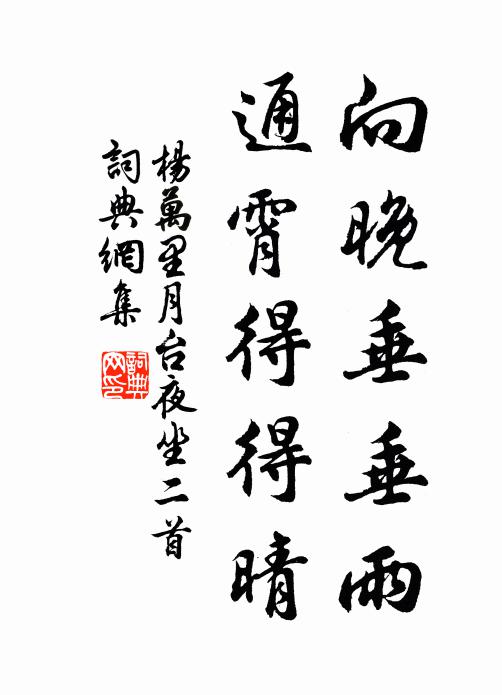 向晚垂垂雨
通霄得得晴
楊萬里月台夜坐二首
詞典網集
詞典网印